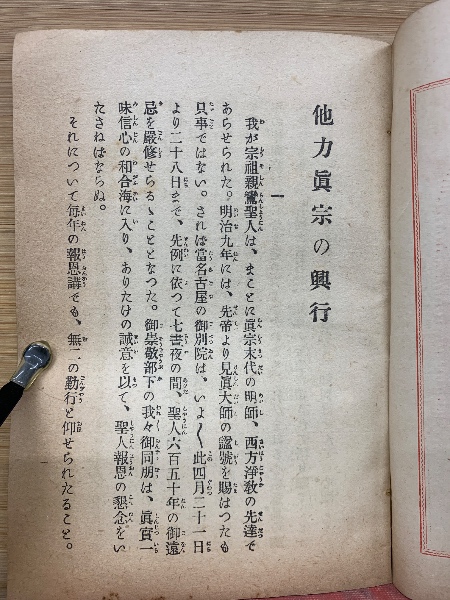 他力眞宗の興行
一
我が宗祖親鸞聖人は、まことに眞宗末代の明師、西方淨敎の先達で
あらせられた。明治九年には、先帝より見眞大師の諡號を賜はつたも
只事ではない。されば當名古屋の御別院は、いよ〱此四月二十一日
より二十八日まで、先例に依つて七晝夜の間、聖人六百五十年の御遠
忌を嚴修せらるゝこととなつた。御崇敬部下の我々御同朋は、眞實一
味信心の和合海に入り、ありたけの誠意を以て、聖人報恩の懇念をい
たさねばならぬ。
それについて每年の報恩講でも、無二の勤行と仰せられたること。